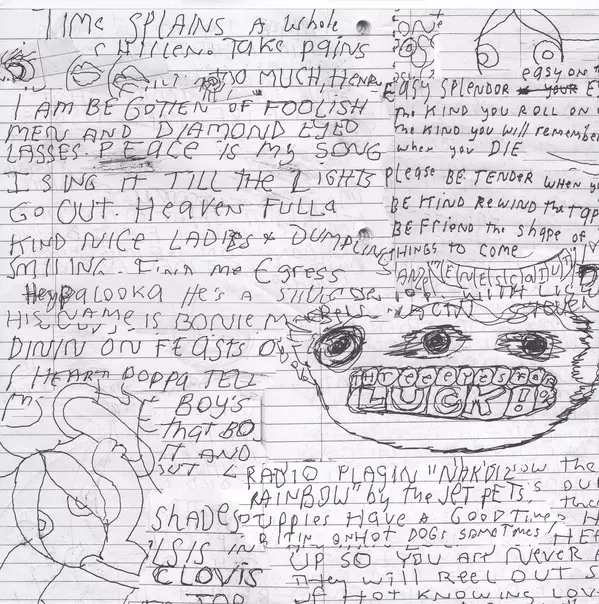 TIME SPLAINS A Whole
CHILLEN. TAKE PAINS
TOO MUCH, HENRY
I AM BEGOTTEN OF FOOLISH
MEN AND DIAMOND EYED
LASSES. PEACE IS MY SONG
I SING IT TILL THE LIGHTS
GO OUT. HEAVEN FULLA
KIND NICE LADIES & DUMPLINS
SMILING. FIND ME EGRESS
HEY PALOOKA HE'S A
HIS NAME IS BONNIE
DININ ON FEASTS
I HEARD POPPA TELL
BOY'S
that BO
IT AND
easy on t
EASY SPLENDOR YOUR E
the KIND YOU ROLL ON
the KIND you will remember
when you DIE
please BE TENDER when y
BE KIND REWIND the tap
BE FRIEND the shape of
THINGS TO COME
THREE EYES FOR
LUCK!!
RADIO PLAYIN "NOW the
RAINBOW" by the JET PETS.
SHADES
PUPPIES HAVE A GOOD TIMES
ON HOT DOGS SOMETIMES
LSIS IN
UP SO YOU ARE NEVER
CLOVIS
They will REEL OUT
TOO
OF HOT KNOWING LOV